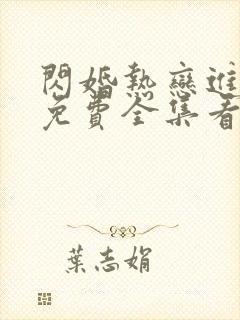 閃婚熱戀進
免費全集看
葉志娟